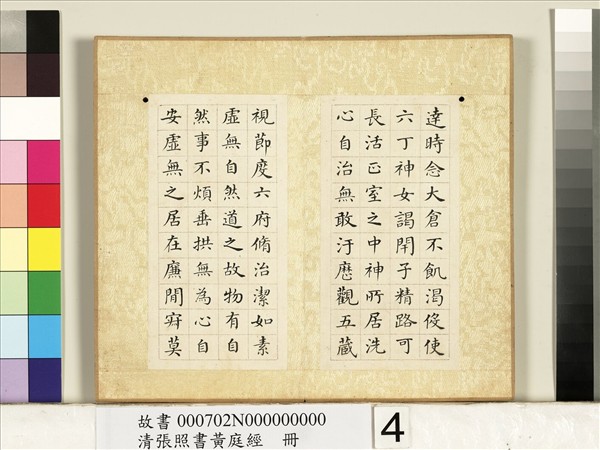 達時念大倉不飢渴伇使
六丁神女謁閇子精路可
長活正室之中神所居洗
心自治無敢汙歷觀五藏
視節度六府脩治潔如素
虛無自然道之故物有自
然事不煩垂拱無為心自
安虛無之居在廉閒寂莫
故書 000702N000000000
清張照書黃庭經 冊
4